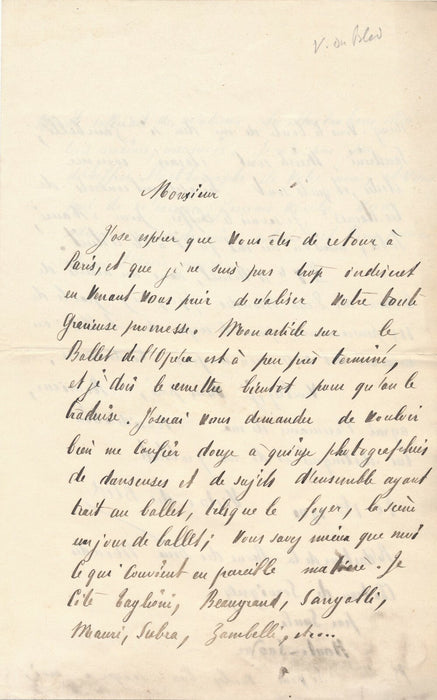 V. du Bled
Monsieur
J'ose espérer que vous êtes de retour à
Paris, et que je ne suis pas trop indiscret
en venant vous prier de réaliser votre toute
gracieuse promesse. Mon article sur le
Ballet de l'Opéra est à peu près terminé,
et je dois le remettre bientôt pour qu'on le
traduise. J'oserai vous demander de vouloir
bien me confier douze à quinze photographies
de danseuses et de sujets d'ensemble ayant
trait au ballet, telles que le foyer, la scène
un jour de ballet; vous savez mieux que moi
ce qui convient en pareille matière. Je
cite Taglioni, Beaugrand, Sangalli,
Mauri, Subra, Zambelli, etc...